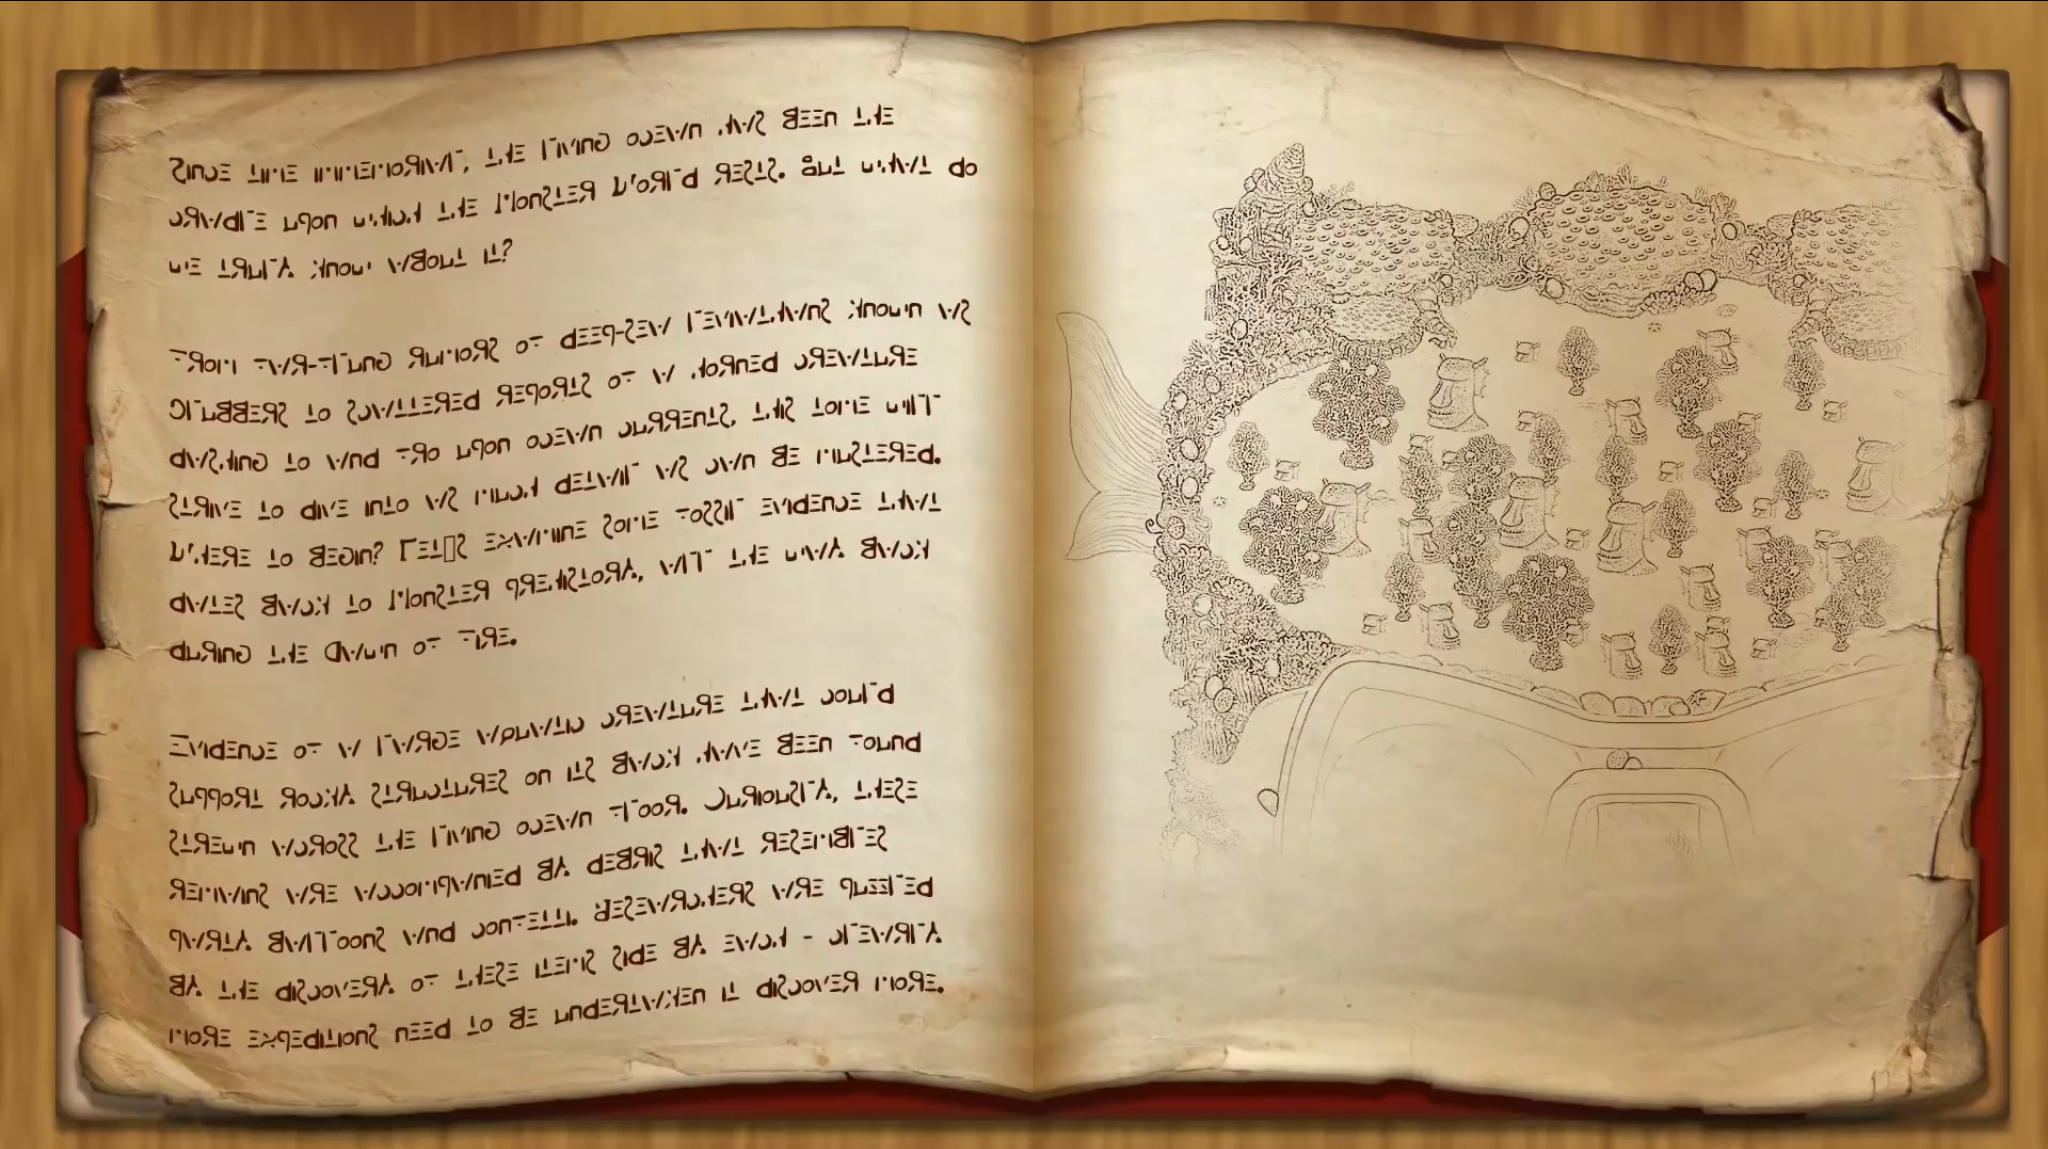 Since time immemorial, the living ocean has been the
cradle upon which the Monster World rests. But what do
we truly know about it?
From far-flung rumors of deep-sea leviathans known as
Glubbers to scattered reports of a horned creature
dashing to and fro upon ocean currents, this tome will
strive to dive into as much detail as can be mustered.
Where to begin? Let□s examine some fossil evidence that
dates back to Monster Prehistory, all the way back
during the Dawn of Fire.
Evidence of a large aquatic creature that could
support rocky structures on its back have been found
strewn across the living ocean floor. Curiously, these
remains are accompanied by debris that resembles
party balloons and confetti. Researchers are puzzled
by the discovery of these items side by each - clearly
more expeditions need to be undertaken it discover more.